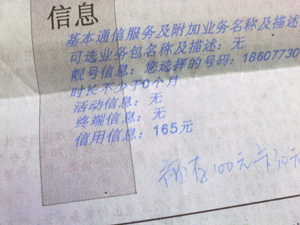 信息
基本通信服务及附加业务名称及描述:
可选业务包名称及描述:无
靓号信息:您选择的号码:18607730
时长不少于0个月
活动信息:无
终端信息:无
信用信息:165元
预存100元